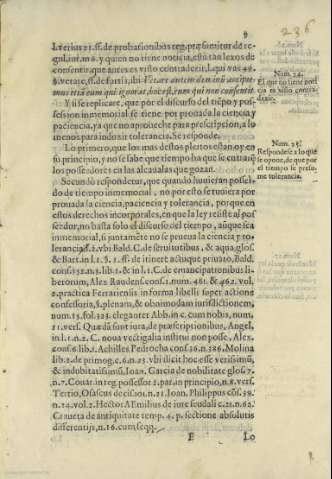 236
9
l. verius 21. ff. de probationibus reg. præsumitur de re-
gul. iur. in 6. y quien no tiene noticia, es sin tan lexos de
consentir, que antes es visto contradezir, l. qui vas 48.
§. vetare, ff. de furtis, ibi: Vetare autem dominũ accipi-
mus etiã eum qui ignorat, hoc est, eum qui non consentit.
Num. 24.
El que no tiene noti
cia es visto contra-
dezir.
Y si se replicare, que por el discurso del tiẽpo y pos-
session inmemorial se tiene por prouada la ciencia y
paciencia, ya que no aproueche para prescripcion, a lo
menos para induzir tolerancia. Se responde.
Num. 25.
Respondese a lo que
se opone, de que por
el tiempo se presu-
me tolerancia.
Lo primero, que los mas destos pleitos estan oy en
su principio, y no se sabe que tiempo ha que se entraiẽ
los posseedores en las alcaualas que gozan.
Secundò respondetur, que quando huuieran posseı-
do de tiempo inmemorial, no por esto se tuuiera por
prouada la ciencia, paciencia y tolerancia, porque en
estos derechos incorporales, en que la ley resiste al pos
seedor, no basta solo el discurso del tiempo, aũque sea
inmemorial, si juntamẽte no se prueua la ciencia y to-
lerancia,
vbi Bald. C. de seruitutibus, & aqua, glos.
& Bart. in l. 1. §. 1. ff. de itinere actuque priuato, Bald.
cons. 352. n. 3. lib. 1. & in l. 1. C. de emancipationibus li-
berorum, Alex. Raudens. cons. 1. num. 481. & 462. vol.
2. practica Ferrariensis in forma libelli super actione
confessoria, §. plenam, & obnimodam iurisdictionem,
num. 13. fol. 323. eleganter Abb. in c. cum nobis, num.
21. vers. Quædã sunt iura, de præscriptionibus, Angel.
in l. 1. n. 2. C. noua vectigalia institui non posse, Alex.
cons. 6. lib. 2. Achilles Pedrocha cons. 26. n. 386. Molina
lib. 2. de primog. c. 6. n. 23. vbi dicit hoc esse verissimũ,
& indubitatissimũ, Ioan. Garcia de nobilitate glos. 7.
n. 7. Couar. in reg. possessor 2. par. in principio, n. 8. vers.
Tertio, Osascus decis. 101. n. 21. Ioan. Philippus cõs. 39.
n. 24. vol. 2. Hector AEmilius de iure feudali c. 21. n. 62.
Craueta de antiquitate temp. 4. p. sectione absolutis
differentijs, n. 16. cum seqq.
E
Lo